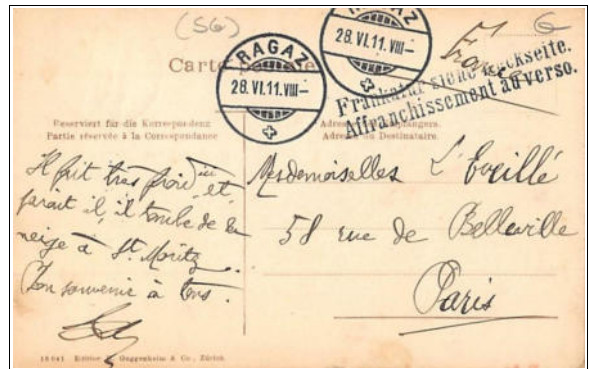 (SG)
G
France
Carte postale
RAGAZ
28.VI.11.VIII–
RAGAZ
28.VI.11.VIII–
Frankatur siehe Rückseite.
Affranchissement au verso.
Reserviert für die Korrespondenz
Partie réservée à la Correspondance
Adresse des Empfängers.
Adresse du Destinataire.
Il fait très froid ici et,
parait il, il tombe de la
neige à St. Moritz.
Bon souvenir à tous.
Mesdemoiselles L'Eveillé
58 rue de Belleville
Paris
Edition Guggenheim & Co., Zürich.